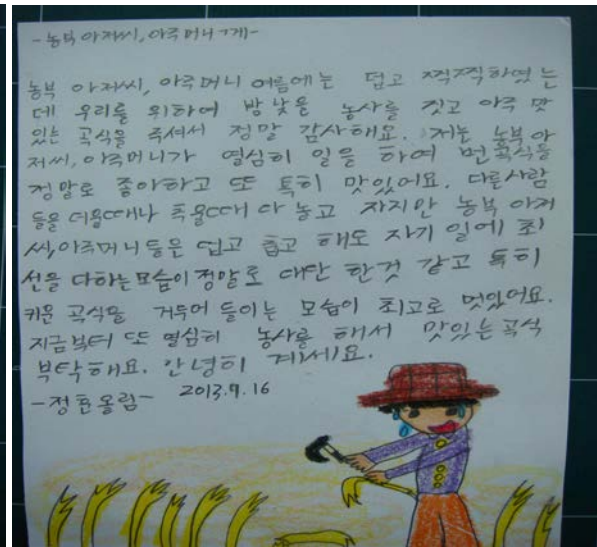 -농부 아저씨, 아주머니께-
농부 아저씨, 아주머니 여름에는 덥고 찍찍하였는
데 우리를 위하여 밤낮을 농사를 짓고 아주 맛
있는 곡식을 주셔서 정말 감사해요. 저는 농부 아
저씨, 아주머니가 열심히 일을 하여 번 곡식을
정말로 좋아하고 또 특히 맛있어요. 다른사람
들은 더울때나 추울때 다 놀고 자지만 농부 아저
씨, 아주머니들은 덥고 춥고 해도 자기 일에 최
선을 다하는모습이 정말로 대단 한것 같고 특히
키운 곡식을 거두어 들이는 모습이 최고로 멋있어요.
지금부터 또 열심히 농사를 해서 맛있는 곡식
부탁해요. 안녕히 계세요.
-정환올림- 2013.9.16